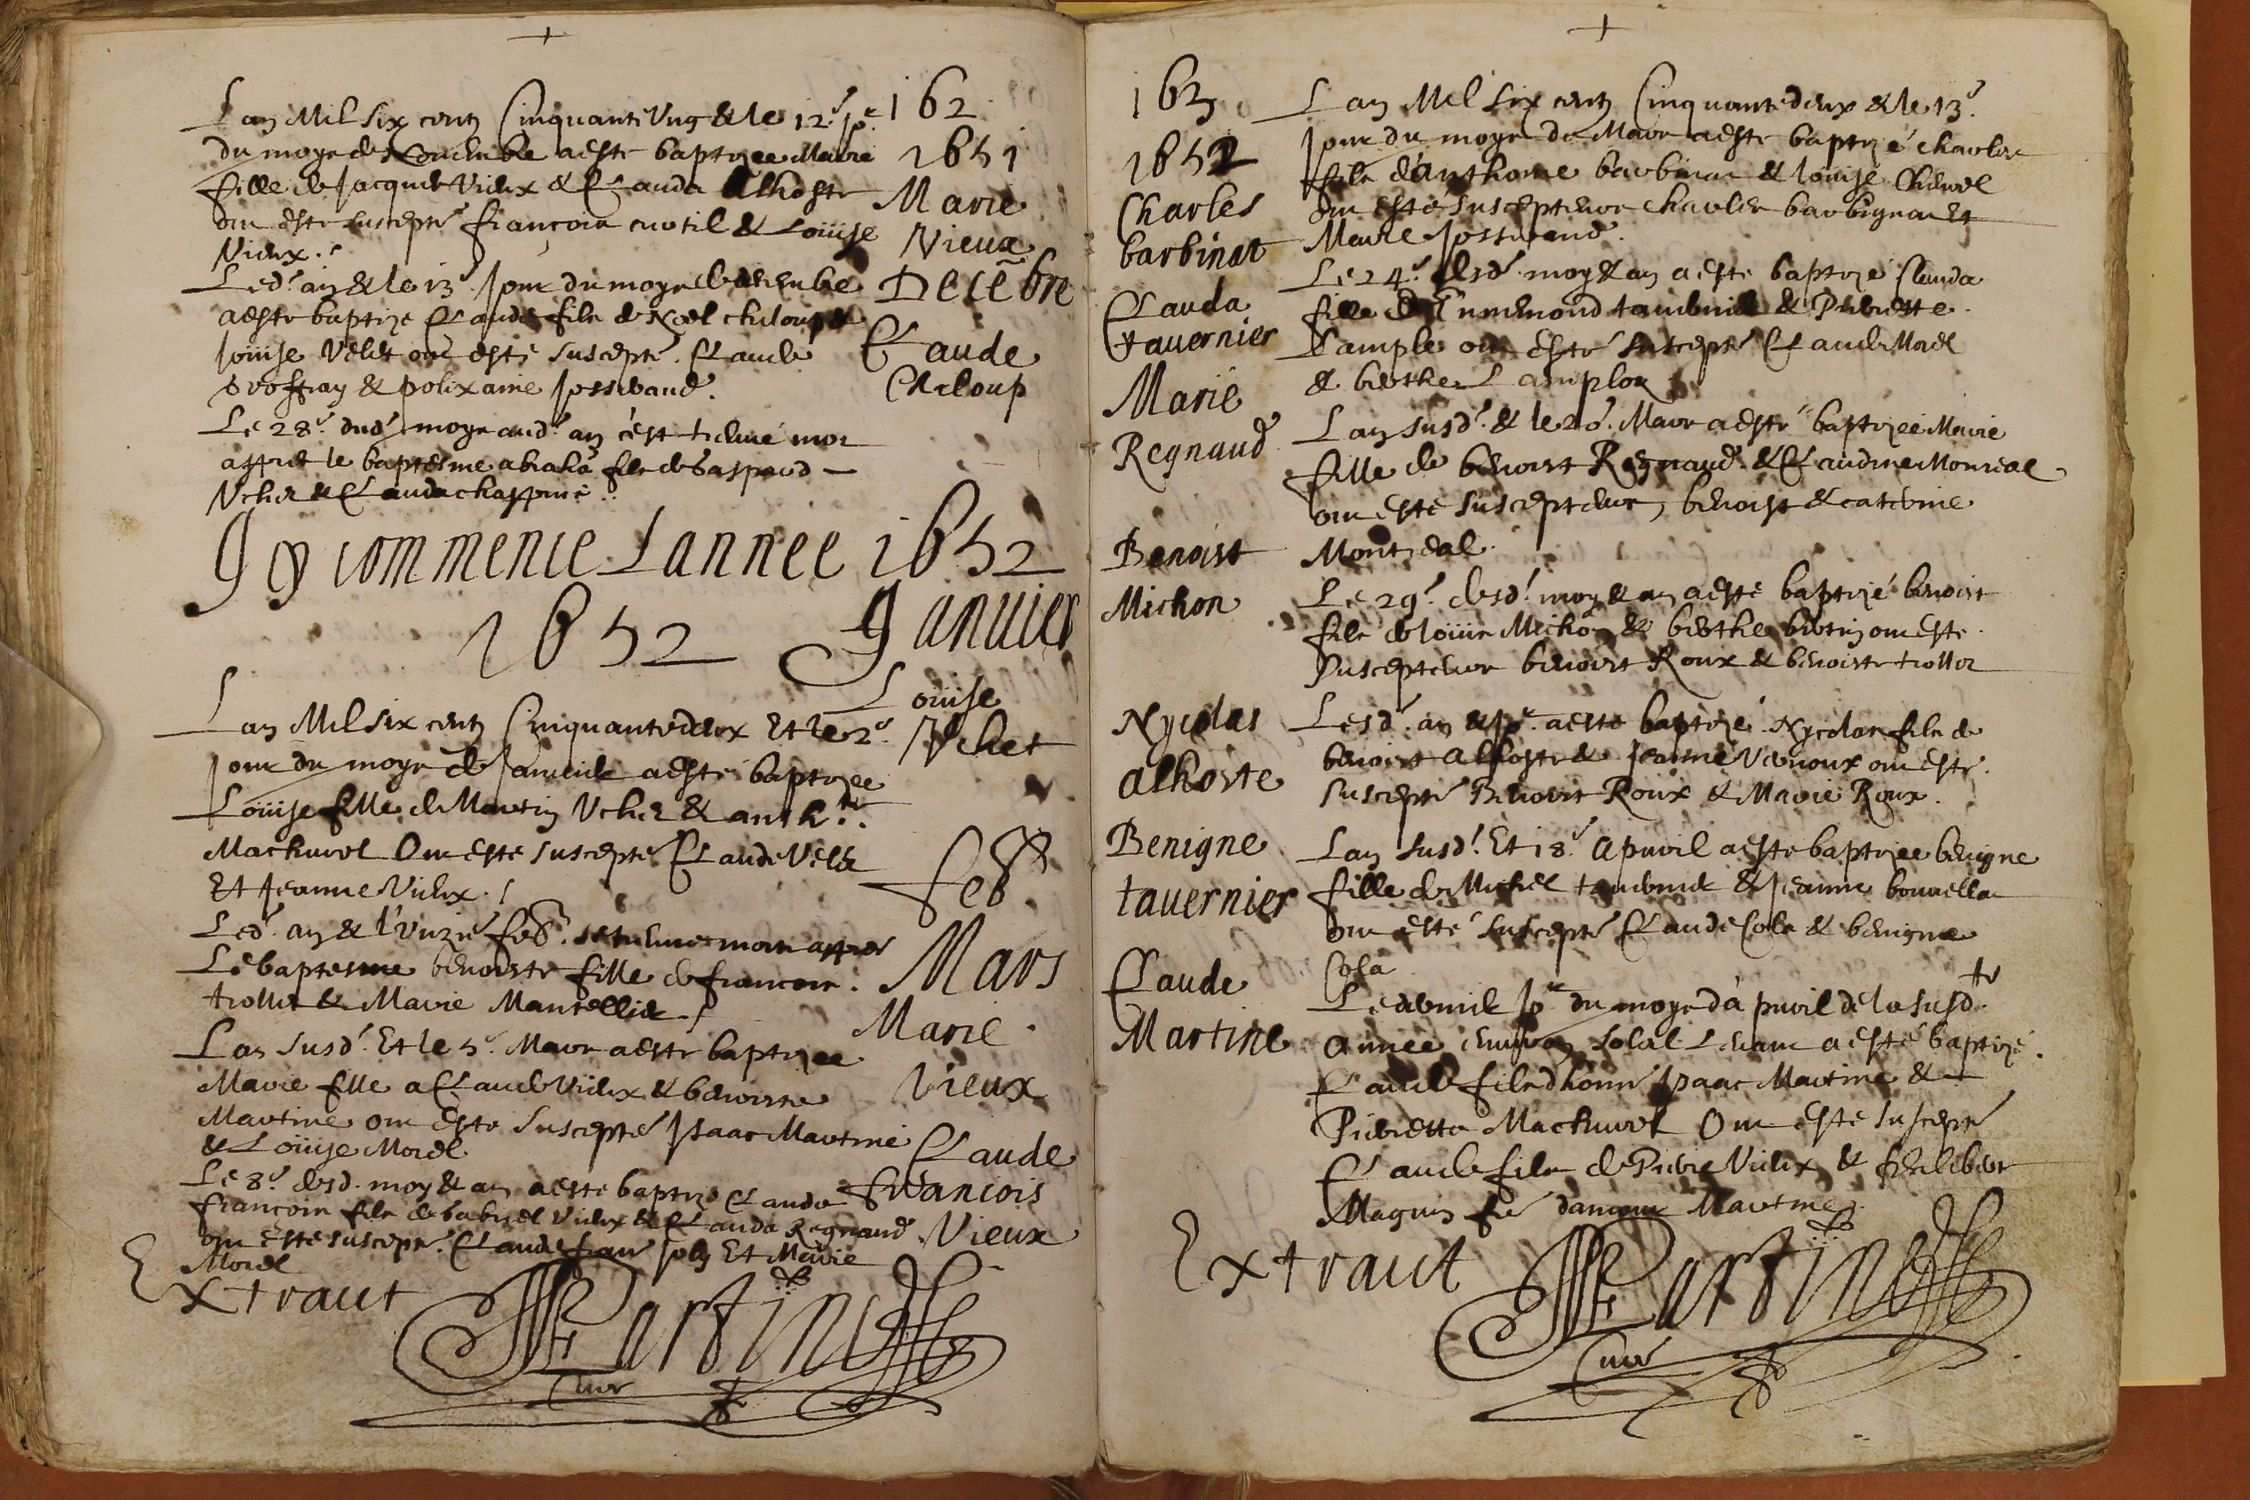 162
Lan Mil Six centz Cinquante Ung & le 12e Jor
du moys de Novembre a este baptizee Marie
fille de Jacques Vieux & Clauda Alhoste
ont este suscepte francois cutil & Louise
Vieux
1651
Marie
Vieux
Led. an & le 13e Jour du moys de decembre
a este baptize Claude fils de Noel chiloup &
Louise Velet ont este suscepte Claude
Broffray & polixaine Josserand
Decẽbre
Claude
Chiloup
Le 28e dud. moys aud. an c'est treuvé mor
appret le baptesme abrahã fils de Gaspard
Vchet & Clauda chappuis
Jcy commence Lannee 1652
1652 Januier
Lan Mil Six centz Cinquante deux Et le 2e
Jour du moys de Januier a este baptizee
Louise fille de Martin Vchet & anth.te
Machurel Ont este suscepte Claude Velet
Et Jeanne Vieux
Louise
Vchet
Led. an & l'unzie feb. se treuve morte appres
Le baptesme benoiste fille de francois
trollier & Marie Mantellier
feb.
Lan Susd. Et le 5e Mars a este baptizee
Marie fille a Claude Vieux & benoiste
Martine ont este suscepte Isaac Martine
& Louise Morel
Mars
Marie
Vieux
Le 8e desd. moy & an a este baptize Claude
francois fils de Gabriel Vieux & Clauda Regnaud
ont este suscepte. Claude fran Joly Et Marie
Morel
Claude
francois
Vieux
Extraict Martine
Cure
163
1652
Charles
barbinat
Lan Mil Six centz Cinquante deux & le 13e
Jour du moys de Mars a este baptizé charles
fils d'anthoine barbinat & louise Chevrel
ont esté suscepteurs charles barbignat Et
Marie Josserand
Clauda
tauernier
Le 24e desd. moy & an a este baptizé Clauda
fille de Ennemond tavernier & Pierrette
Lample ont este suscepte Claude Morel
& berthe Lamploz
Marie
Regnaud
Lan susd. & le 26e Mars a este baptizee Marie
fille de benoist Regnaud & Claudine Monreal
ont este suscepteurs, benoist & caterine
Montreal
Benoist
Michon
Le 29e desd. moy & an a este baptizé benoist
fils de Louis Michon & berthe bertin ont este
Suscepteurs benoist Roux & benoiste trollier
Nycolas
alhoste
Lesd. an & Jor a este baptizé Nycolas fils de
benoist Alhoste & Jeanne Vernoux ont este
suscepte Benoist Roux & Marie Roux
Benigne
tauernier
Lan susd. Et 18e Apuril a este baptizee benigne
fille de Michel tavernier & Jeanne bouuella
ont este suscepte Claude Cola & benigne
Cola
Claude
Martine
Le dernier Jor du moys d'apuril de la susd.te
Année environ soleil Levant a esté baptizé
Claude fils d'honn. Isaac Martine &
Pierrette Machurel Ont este suscepte
Claude fils de Pierre Vieux & philiberte
Magnin fe damour Martine
Extraict Martine
Cure